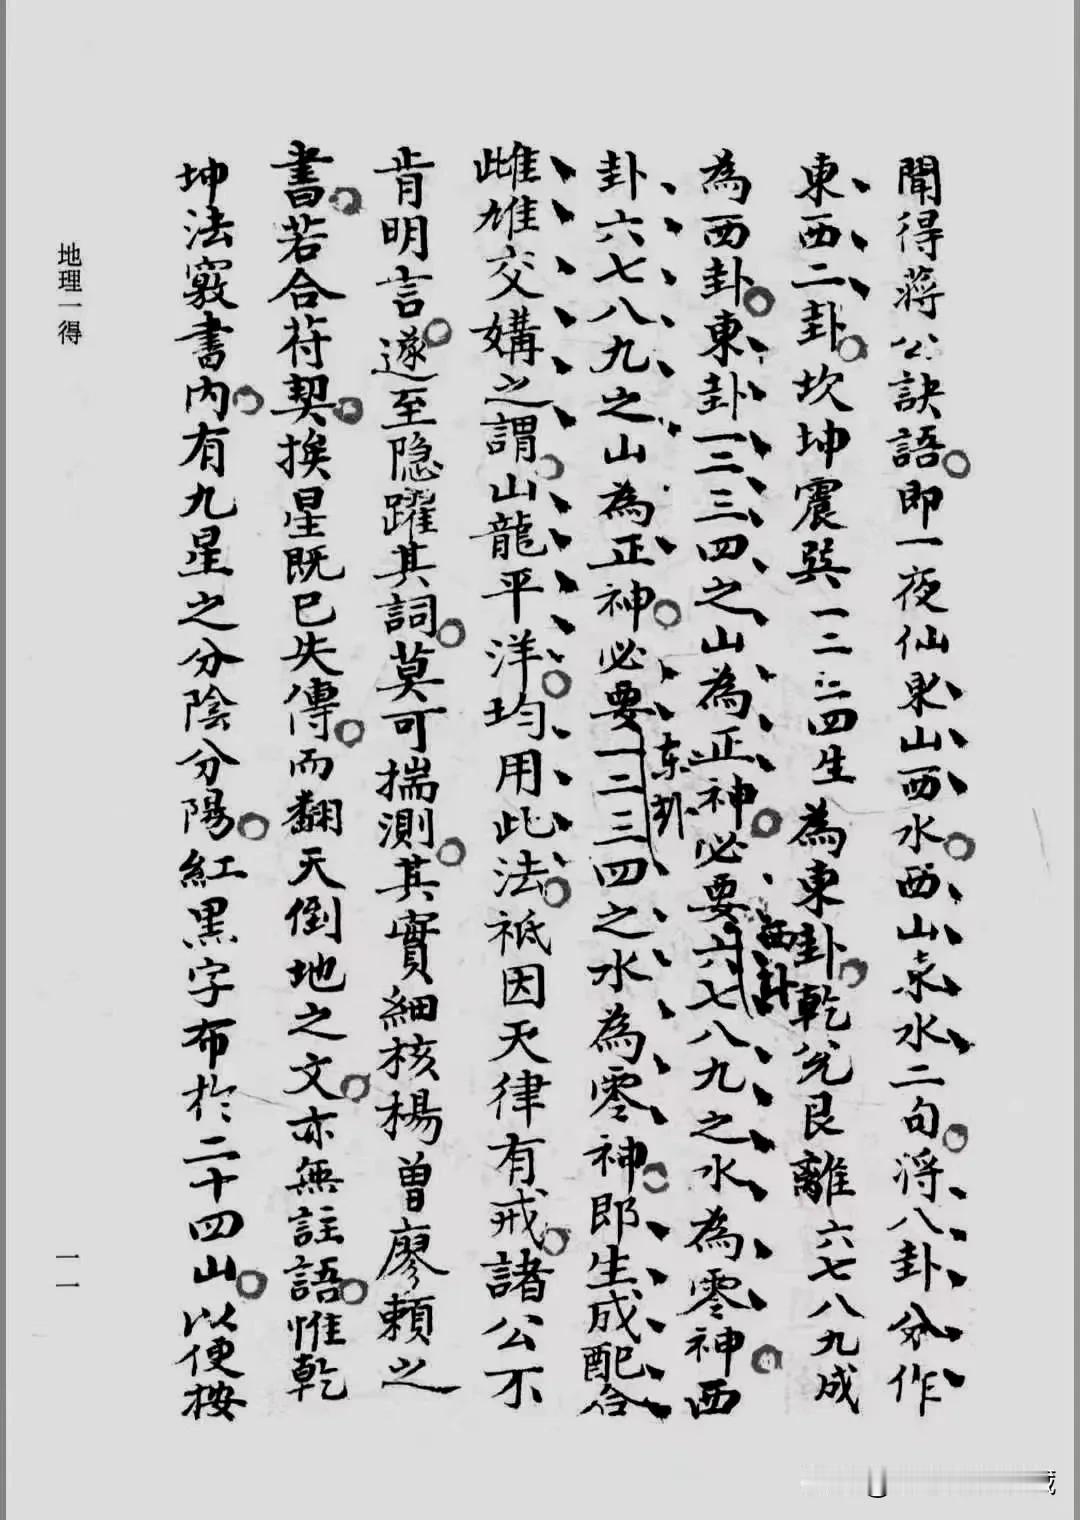 聞得蔣公訣語即一夜仙東山西水西山東水二句將八卦分作
東西二卦坎坤震巽一二三四生為東卦乾兌艮離六七八九成
為西卦東卦一二三四之山為正神必要六七八九之水為零神西
西卦
卦六七八九之山為正神必要一二三四之水為零神即生成配合
东卦
雌雄交媾之謂山龍平洋均用此法祗因天律有戒諸公不
肯明言遂至隐躍其詞莫可揣測其實細核楊曾廖賴之
書若合符契挨星既已失傳而翻天倒地之文亦無註語惟乾
坤法竅書內有九星之分陰分陽紅黑字布於二十四山以便按
地理一得
一一
藏